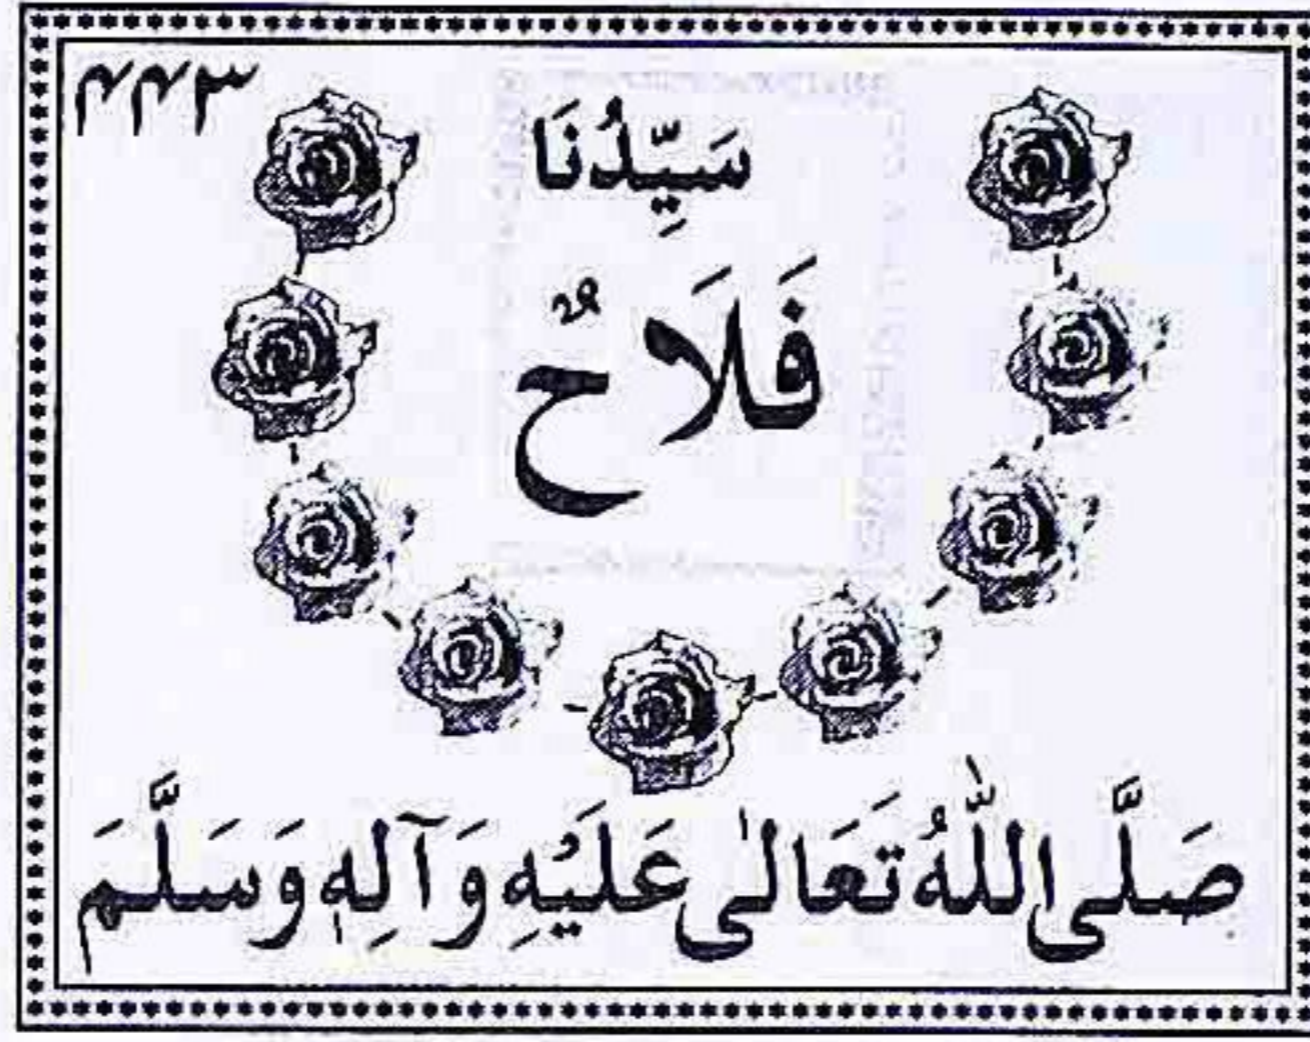 ۴۴۳
سَيِّدُنَا
فَلَاحٌ
صَلَّى اللّٰهُ تَعَالٰى عَلَيْهِ وَآلِهٖ وَسَلَّمَ